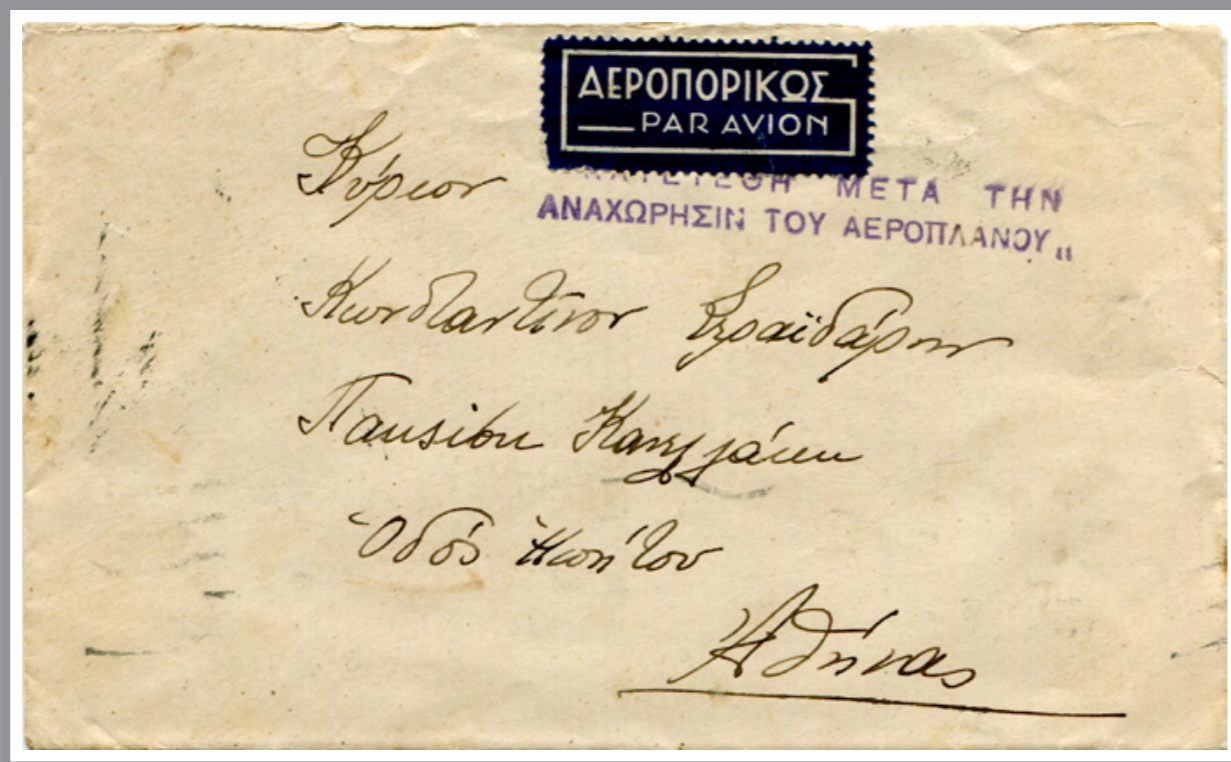 ΑΕΡΟΠΟΡΙΚΩΣ
PAR AVION
ΜΕΤΑ ΤΗΝ
ΑΝΑΧΩΡΗΣΙΝ ΤΟΥ ΑΕΡΟΠΛΑΝΟΥ„
Κύριον
Κωνσταντίνον Σεραϊδάρην
Πανσιόν Κανελλάκη
Ὁδός
Ἀθήνας